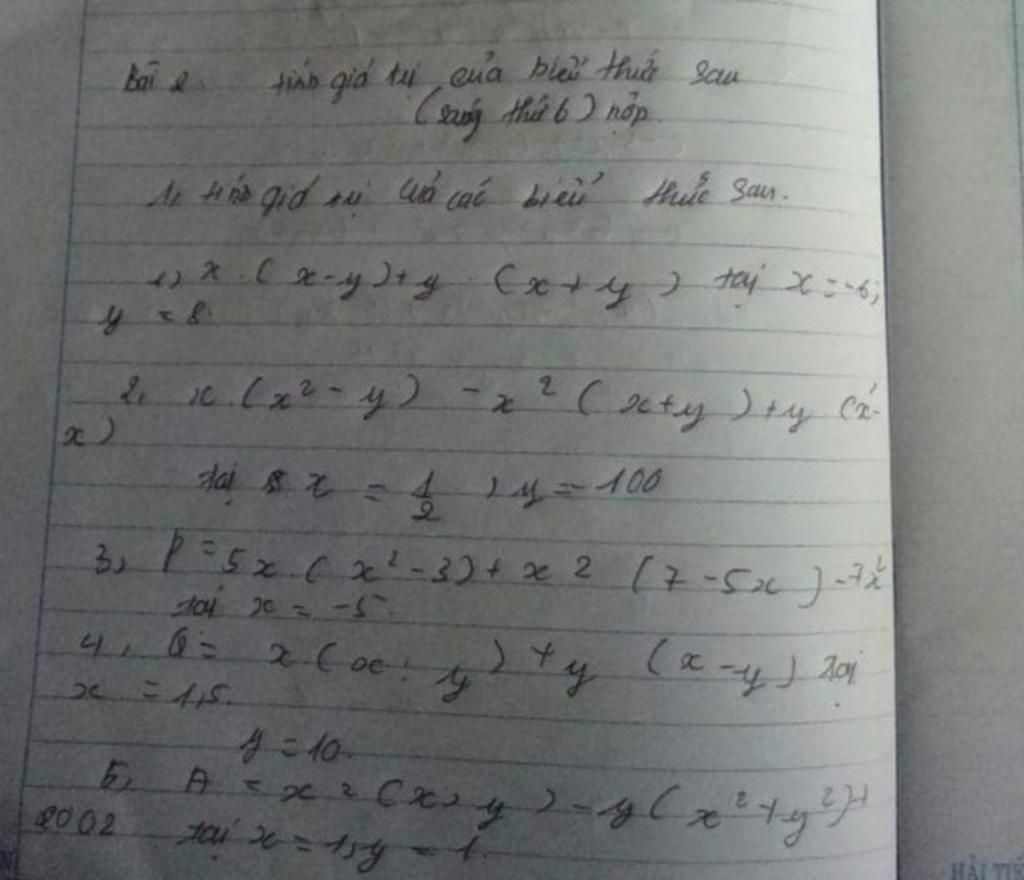 Bài 2. tính giá trị của biểu thức sau
(sáng thứ 6) nộp.
1, tính giá trị của các biểu thức sau.
1) x . (x-y)+y . (x+y) tại x=-6;
y = 8.
2, x.(x² - y) - x² (x+y)+y (x²-
x)
tại x = 1/2 , y=-100
3, P= 5x (x²-3)+x2 (7-5x)-7x²
tại x = -5.
4, Q= x(x- y) + y (x-y) tại
x = 1,5.
y = 10.
5, A = x² (x+y) - y(x²+y²)+
2002 tại x=1, y=1.
HẢI TIẾ